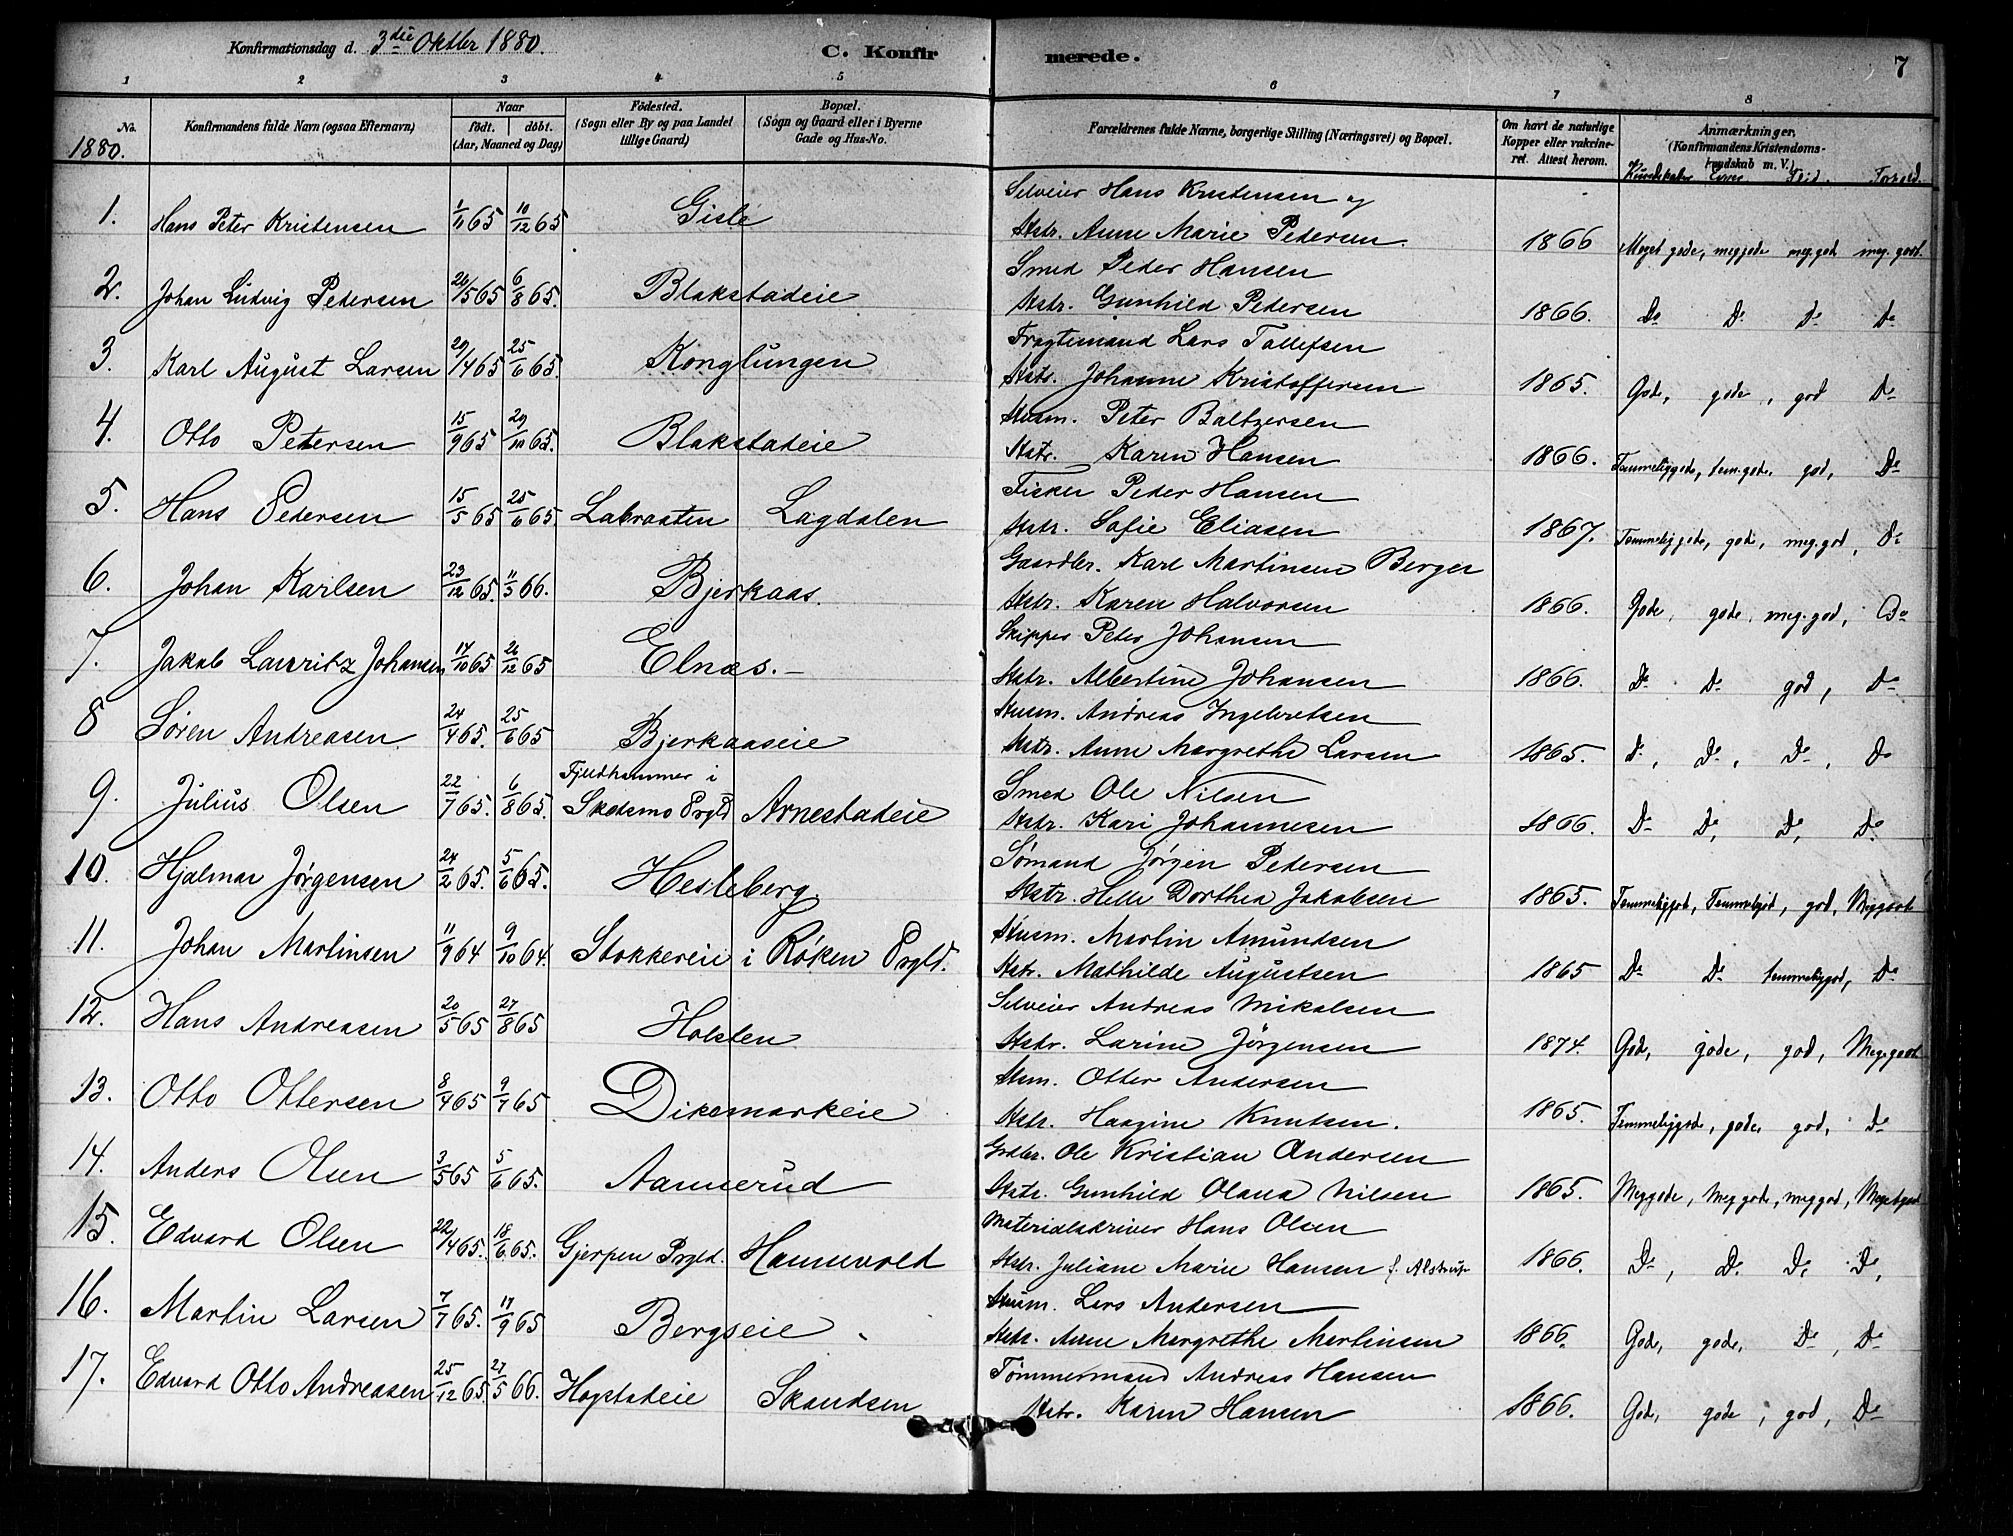 Konfirmationsdag d. 3die Oktbr 1880.
C. Konfirmerede.
7
1 2 3 4 5 6 7 8
No.
Konfirmandens fulde Navn (ogsaa Efternavn)
Naar
født. døbt.
(Aar, Maaned og Dag)
Födested.
(Sogn eller By og paa Landet
tillige Gaard)
Bopæl.
(Sogn og Gaard eller i Byerne
Gade og Hus-No.
Forældrenes fulde Navne, borgerlige Stilling (Næringsvei) og Bopæl.
Om havt de naturlige
Kopper eller vakcine-
ret. Attest herom.
Anmærkninger,
(Konfirmandens Kristendoms-
kundskab m. V.)
1880.
Kundskaber Evner Flid. Forhold.
Selveier Hans Kristensen og
1. Hans Peter Kristensen 1/11 65 10/12 65 Gisle Hstr. Anne Marie Pedersen 1866 Meget gode, meg gode meg. god meg. godt.
Smed Peder Hansen
2. Johan Ludvig Pedersen 26/5 65 6/8 65. Blakstadeie Hstr. Gunhild Pedersen 1866. Do Do Do Do
Fragtemand Lars Tollefsen
3. Karl August Larsen 29/4 65 25/6 65. Konglungen Hstr. Johanne Kristoffersen 1865. Gode, gode, god Do
Husm. Peter Baltzersen
4. Otto Petersen 15/9 65 29/10 65. Blakstadeie Hstr. Karen Hansen 1866. Temmelig gode, tem. gode. god, Do
Fisker Peder Hansen
5. Hans Pedersen 15/5 65 25/6 65. Labraaten Lagdalen Hstr. Sofie Eliasen 1867. Temmelig gode, gode, meg. god, Do
Gaardbr. Karl Martinsen Berger
6. Johan Karlsen 23/12 65. 11/3 66. Bjerkaas. Hstr. Karen Halvorsen 1866. Gode, gode, meg. god, Do
Skipper Peter Johansen
7. Jakob Lauritz Johansen 14/10 65 26/12 65 Elnæs. Hstr. Albertine Johansen 1866. Do Do god, Do
Husm. Andreas Ingebretsen
8 Sören Andreasen 24/4 65. 25/6 65 Bjerkaaseie Hstr. Anne Margrethe Larsen 1865. Do, Do, Do, Do
Fjeldhammer i Smed Ole Nilsen
9. Julius Olsen 22/7 65. 6/8 65. Skedsmo Prgld Arnestadeie Hstr. Kari Johannesen 1866. Do Do, Do, Do
Sømand Jørgen Pedersen
10. Hjalmar Jørgensen 24/2 65. 5/6 65. Hesleberg. Hstr. Helle Dorthea Jakobsen 1865. Temmelig god, Temmelig god, god, Meg godt
Husm. Martin Amundsen
11. Johan Martinsen 11/9 64 9/10 64. Stokkereie i Røken Prgld. Hstr. Mathilde Augustsen 1865 Do Do temmelig god, Do
Selveier Andreas Mikalsen
12. Hans Andreasen 20/5 65 27/8 65 Holsten Hstr. Larine Jørgensen 1874. Gode, gode, god, Meg. godt
Husm. Otter Andersen
13. Otto Ottersen 8/4 65 9/7 65 Dikemarkeie Hstr. Haagine Knutsen. 1865. Temmelig gode, gode, god, Do
Grdbr. Ole Kristian Andersen
14. Anders Olsen 3/5 65 5/6 65. Aannerud Hstr. Gunhild Olava Nilsen 1865. Meg gode, Meg gode, meg god, Meget godt
Materialskriver Hans Olsen
15. Edvard Olsen 22/4 65. 18/6 65. Gjerpen Prgld. Hannevold Hstr. Juliane Marie Hansen f. Alstrup 1866. Do, Do, Do, Do,
Husm. Lars Andersen
16. Martin Larsen 7/7 65. 17/9 65 Bergseie Hstr. Anne Margrethe Martinsen 1866. Gode, gode, Do, Do
Tömmermand Andreas Hansen
17. Edvard Otto Andreasen 25/12 65 27/5 66. Hogstadeie Skandsen Hstr. Karen Hansen 1866. Gode, gode, god, Do